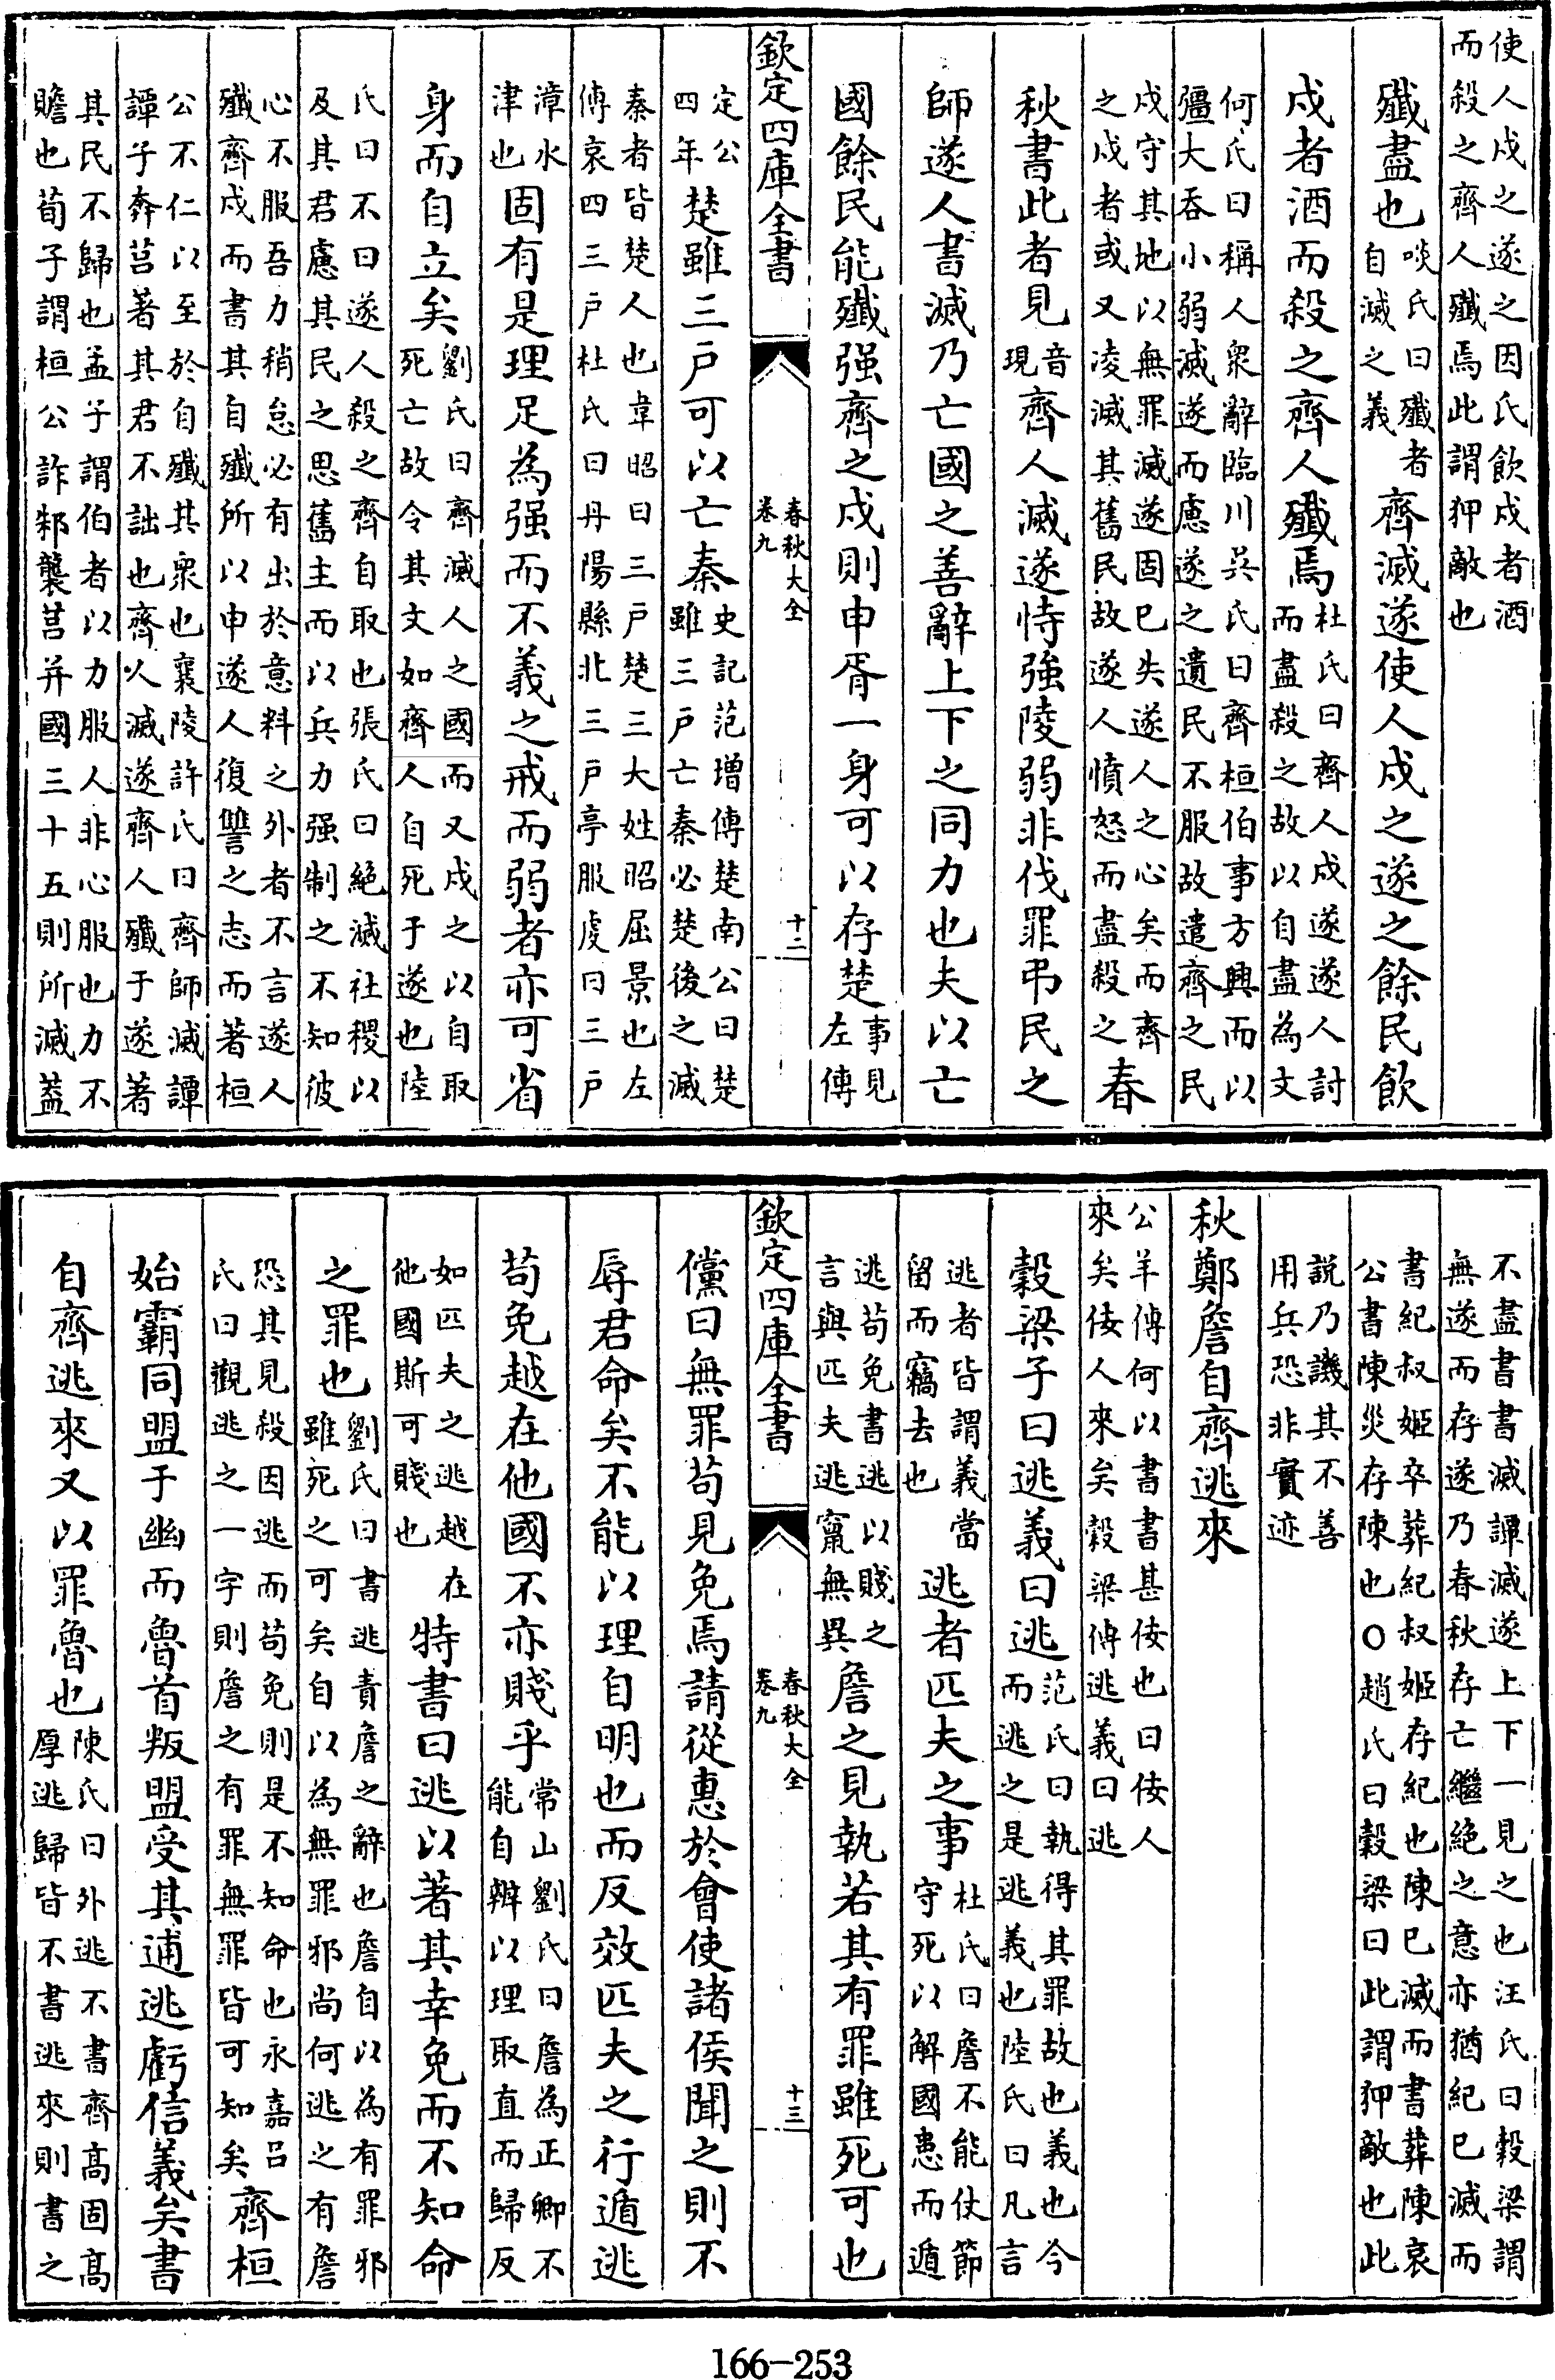 使人戍之遂之因氏飲戍者酒
而殺之齊人殲焉此謂狎敵也
殲盡也啖氏曰殲者自滅之義齊滅遂使人戍之遂之餘民飲
戍者酒而殺之齊人殲焉杜氏曰齊人戍遂遂人討而盡殺之故以自盡為文
何氏曰稱人衆辭臨川吳氏曰齊桓伯事方興而以
彊大吞小弱滅遂而慮遂之遺民不服故遣齊之民
戍守其地以無罪滅遂固已失遂人之心矣而齊之戍者或又凌滅其舊民故遂人憤怒而盡殺之春
秋書此者見音現齊人滅遂恃強陵弱非伐罪弔民之
師遂人書滅乃亡國之善辭上下之同力也夫以亡
國餘民能殲强齊之戍則申胥一身可以存楚事見左傳
欽定四庫全書 春秋大全卷九 十二
定公四年楚雖三戶可以亡秦史記范增傳楚南公曰楚雖三戶亡秦必楚後之滅
秦者皆楚人也韋昭曰三戶楚三大姓昭屈景也左
傳哀四三戶杜氏曰丹陽縣北三戶亭服虔曰三戶
漳水津也固有是理足為强而不義之戒而弱者亦可省
身而自立矣劉氏曰齊滅人之國而又戍之以自取死亡故令其文如齊人自死于遂也陸
氏曰不曰遂人殺之齊自取也張氏曰絕滅社稷以
及其君慮其民之思舊主而以兵力强制之不知彼
心不服吾力稍怠必有出於意料之外者不言遂人
殲齊戍而書其自殲所以申遂人復讐之志而著桓
公不仁以至於自殲其衆也襄陵許氏曰齊師滅譚
譚子奔莒著其君不詘也齊人滅遂齊人殲于遂著
其民不歸也孟子謂伯者以力服人非心服也力不
贍也荀子謂桓公詐邾襲莒并國三十五則所滅蓋
不盡書書滅譚滅遂上下一見之也汪氏曰穀梁謂
無遂而存遂乃春秋存亡繼絕之意亦猶紀已滅而
書紀叔姬卒葬紀叔姬存紀也陳已滅而書葬陳哀
公書陳災存陳也○趙氏曰穀梁曰此謂狎敵也此
説乃譏其不善
用兵恐非實迹
秋鄭詹自齊逃來
公羊傳何以書書甚佞也曰佞人
來矣佞人來矣穀梁傳逃義曰逃
穀梁子曰逃義曰逃范氏曰執得其罪故也義也今而逃之是逃義也陸氏曰凡言
逃者皆謂義當留而竊去也逃者匹夫之事杜氏曰詹不能伏節守死以解國患而遁
逃苟免書逃以賤之言與匹夫逃竄無異詹之見執若其有罪雖死可也
欽定四庫全書 春秋大全卷九 十三
儻曰無罪苟見免焉請從惠於會使諸侯聞之則不
辱君命矣不能以理自明也而反效匹夫之行遁逃
苟免越在他國不亦賤乎常山劉氏曰詹為正卿不能自辨以理取直而歸反
如匹夫之逃越在他國斯可賤也特書曰逃以著其幸免而不知命
之罪也劉氏曰書逃責詹之辭也詹自以為有罪邪雖死之可矣自以為無罪邪尚何逃之有詹
恐其見殺因逃而苟免則是不知命也永嘉呂氏曰觀逃之一字則詹之有罪無罪皆可知矣齊桓
始霸同盟于幽而魯首叛盟受其逋逃虧信義矣書
自齊逃來又以罪魯也陳氏曰外逃不書齊高固高厚逃歸皆不書逃來則書之
166-253